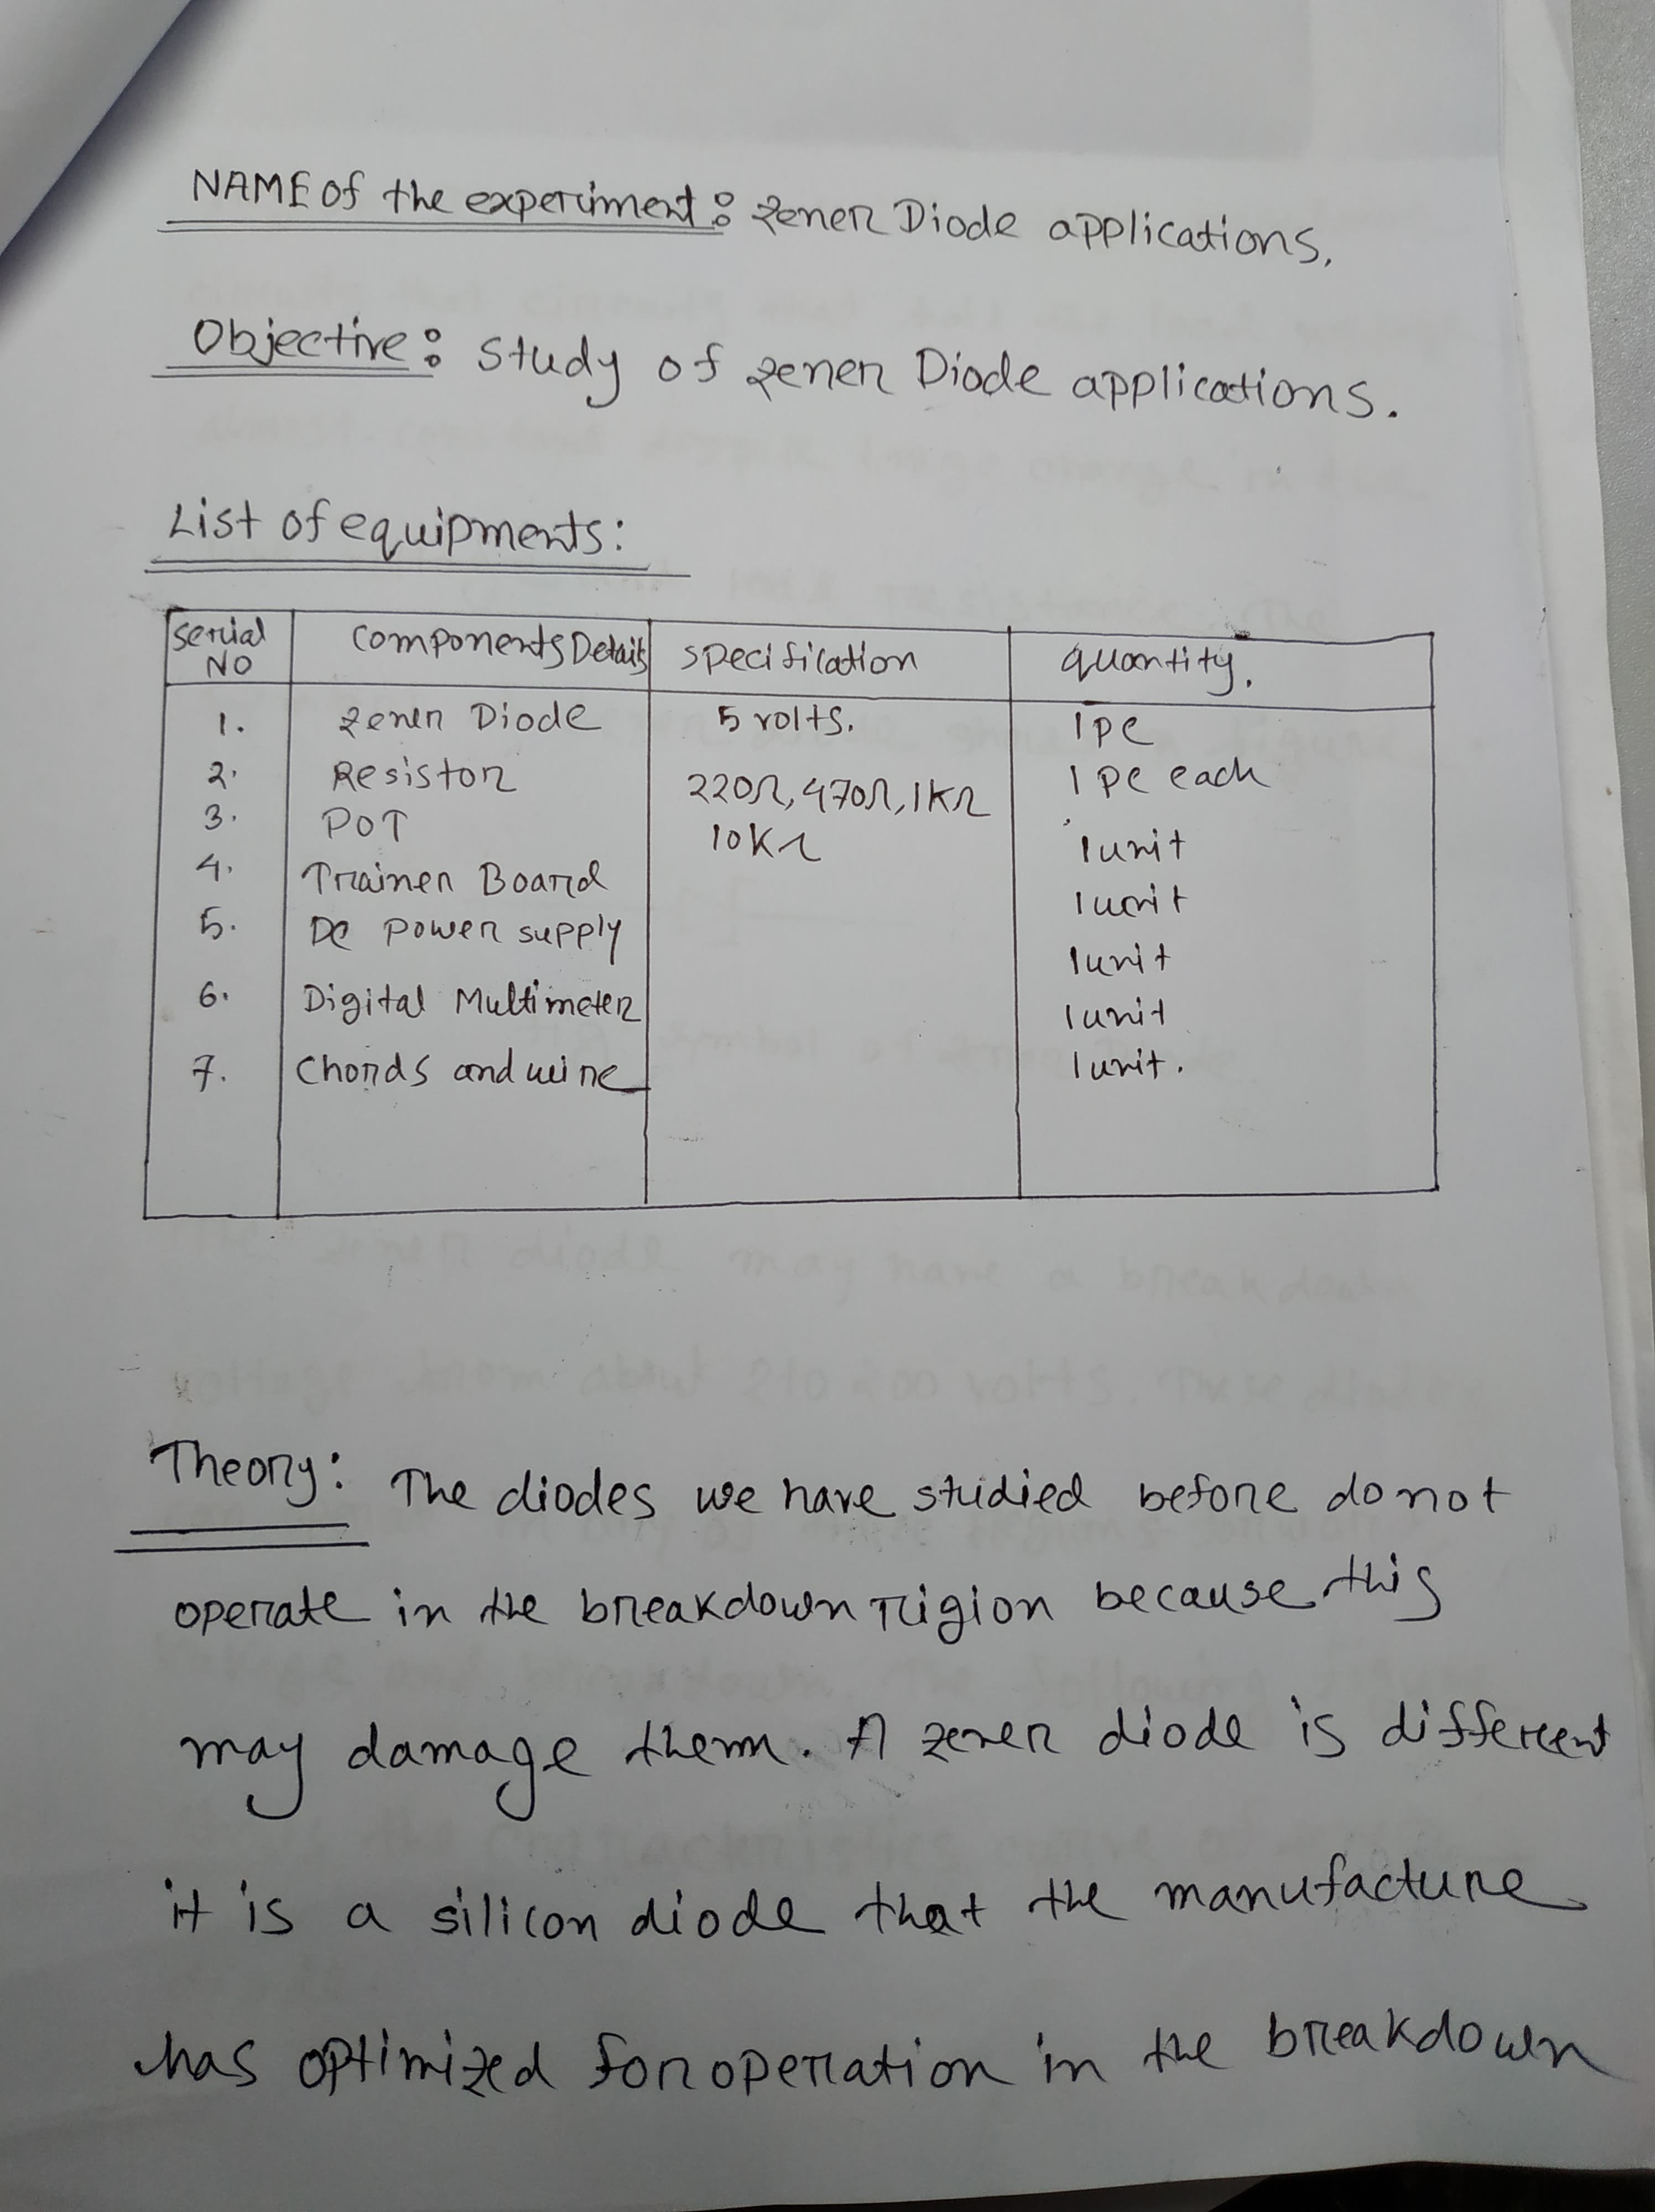 NAME of the experiment: Zener Diode applications.
Objective: Study of Zener Diode applications.
List of equipments:
Serial NO | Components Details | Specification | quantity.
1. | Zener Diode | 5 volts. | 1 pc
2. | Resistor | 220Ω, 470Ω, 1KΩ | 1 pc each
3. | POT | 10KΩ | 1 unit
4. | Trainer Board | | 1 unit
5. | DC power supply | | 1 unit
6. | Digital Multimeter | | 1 unit
7. | Chords and wire | | 1 unit.
Theory: The diodes we have studied before do not
operate in the breakdown rigion because this
may damage them. A zener diode is different
it is a silicon diode that the manufacture
has optimized for operation in the breakdown